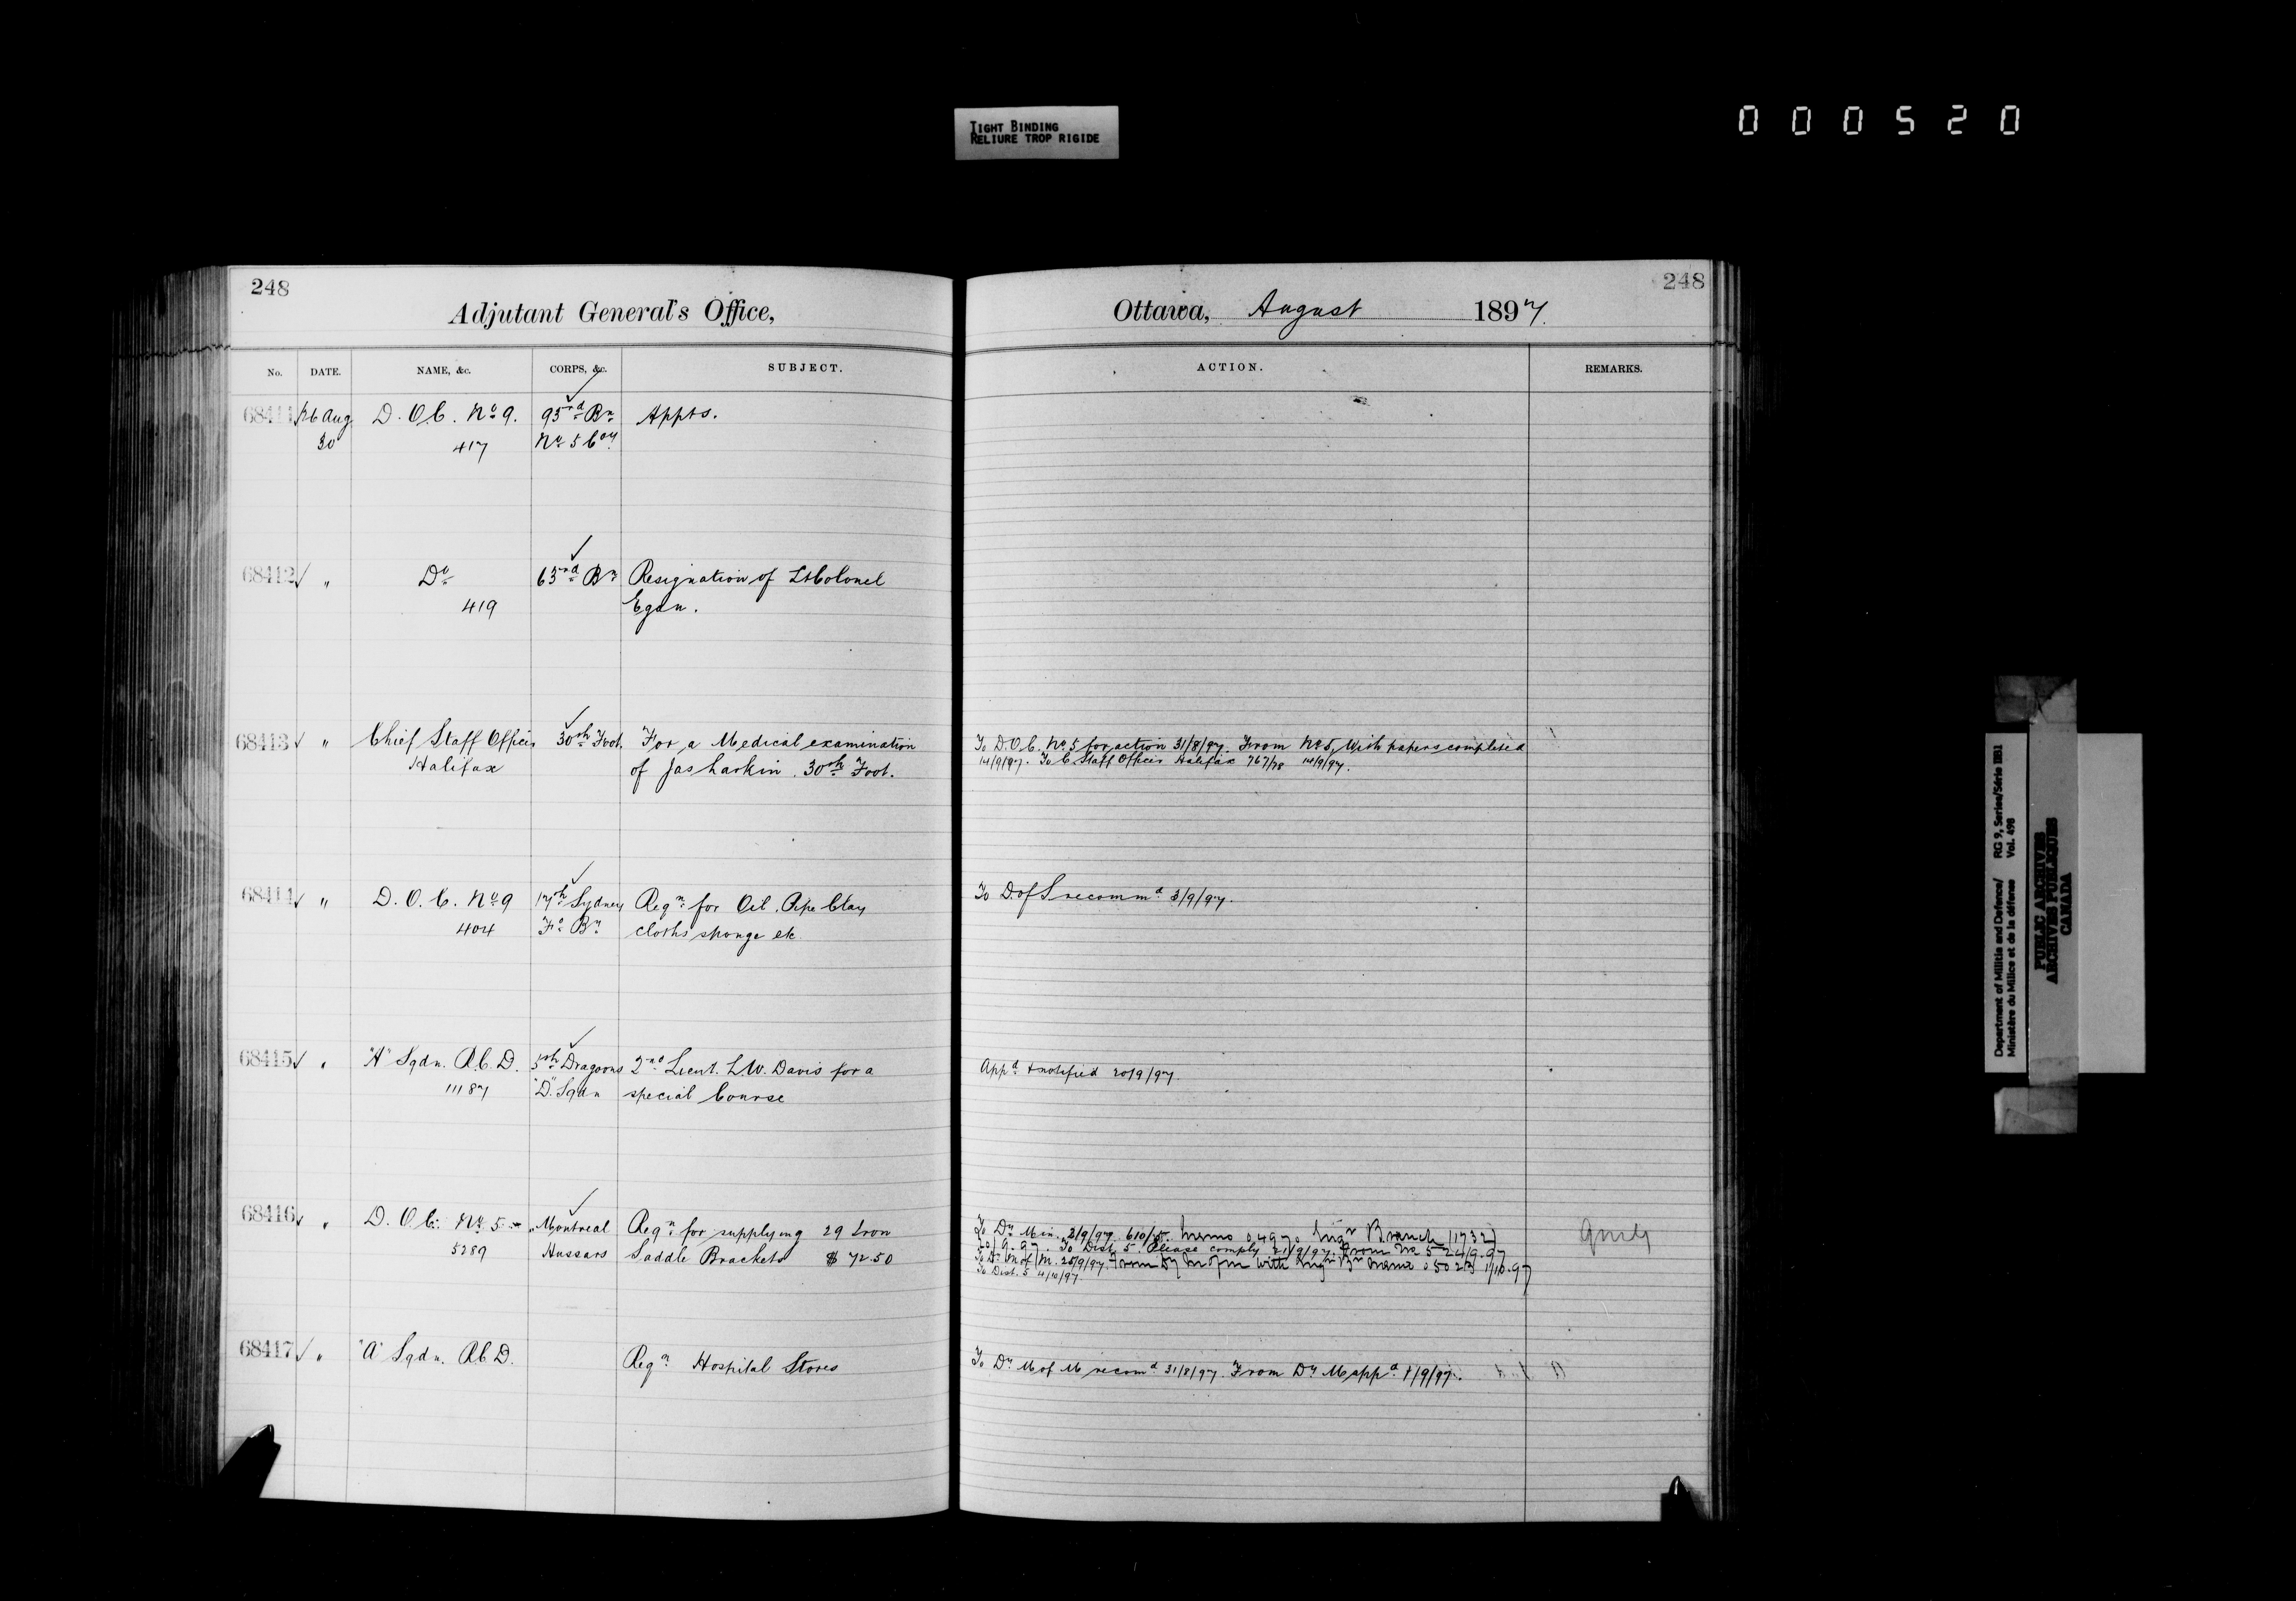 TIGHT BINDING
RELIURE TROP RIGIDE
000520
248
Adjutant General's Office,
No. DATE. NAME, &c. CORPS, &c. SUBJECT.
68411 26 Aug D.O.C. No 9. 93rd Bn Appts.
30 417 No 5 Coy
68412 " Do 63rd Bn Resignation of Lt Colonel
419 Egan.
68413 " Chief Staff Officer 30th Foot. For a Medical examination
Halifax of Jas Larkin 30th Foot.
68414 " D.O.C. No 9 17th Sydney Reqn for Oil, Pipe Clay
404 Fd Bn cloths sponge etc.
68415 " "A" Sqdn. R.C.D. 5th Dragoons 2nd Lieut. L.W. Davis for a
11187 "D" Sqdn special Course
68416 " D.O.C. No 5 Montreal Reqn for supplying 29 Iron
5289 Hussars Saddle Brackets $ 72.50
68417 " "A" Sqdn. RCD. Reqn Hospital Stores
248
Ottawa, August 1897.
ACTION. REMARKS.
To D.O.C. No 5 for action 31/8/97. From No 5, With papers completed
14/9/97. To C Staff Officer Halifax 767/78 14/9/97.
To D. of S recommd 3/9/97.
Appd & notified 20/9/97.
To Dy Min. 2/9/97. 610/5. Memo 0497 Branch 11732
20.9.97. To Dist. 5 Please comply 21/9/97. From No 5 24/9.97
To Dy M of M. 25/9/97. From Dy M of M with Memo 1/10.97
To Dist. 5 4/10/97
To Dy M of M recomd 31/8/97. From Dy M appd 1/9/97.
Department of Militia and Defence/ RG 9, Series/Série IIB1
Ministère du Milice et de la défense Vol. 498
PUBLIC ARCHIVES
ARCHIVES PUBLIQUES
CANADA